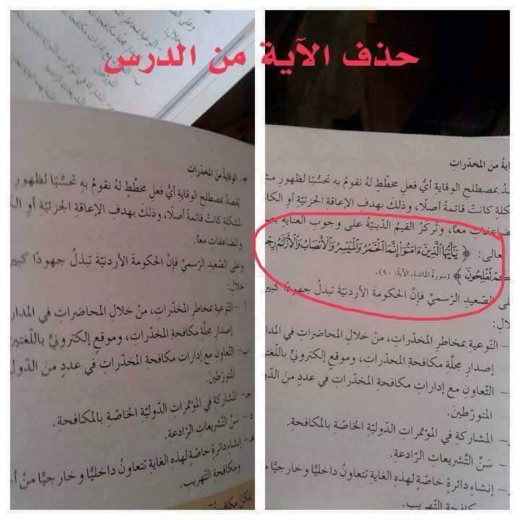 حذف الآية من الدرس
الوقاية من المخدّراتِ
يُقصدُ بمصطلحِ الوقاية أيُّ فعلٍ مخطّطٍ لهُ نقومُ بهِ تحسُّبًا لظهورِ
لمشكلةٍ كانتْ قائمةً أصلًا، وذلك بهدفِ الإعاقةِ الجزئيّةِ أوِ
والمضاعفات معًا.
وعلى الصّعيدِ الرّسميِّ فإنَّ الحكومةَ الأردنيّةَ تبذلُ جهودًا
خلال:
أ - التّوعية بمخاطرِ المخدّراتِ، منْ خلالِ المحاضراتِ في
إصدارِ مجلّةِ مكافحةِ المخدّراتِ، وموقعٍ إلكترونيٍّ باللّغتينِ
ب- التّعاونِ مع إداراتِ مكافحةِ المخدّراتِ في عددٍ من الدّولِ
المتورّطينَ.
جـ- المشاركةِ في المؤتمراتِ الدّوليّةِ الخاصّةِ بالمكافحةِ.
د - سَنِّ التّشريعاتِ الرّادعةِ.
هـ- إنشاءِ دائرةٍ خاصّةٍ لهذهِ الغايةِ تتعاونُ داخليًّا وخارجيًّا منْ
ومكافحةِ التّهريبِ.
من المخدّراتِ
بمصطلحِ الوقاية أيُّ فعلٍ مخطّطٍ لهُ نقومُ بهِ تحسُّبًا لظهورِ
كانتْ قائمةً أصلًا، وذلك بهدفِ الإعاقةِ الجزئيّةِ أوِ
معًا، وتركّزُ القيمُ الدّينيّةُ على وجوبِ العنايةِ
﴿ يَٰٓأَيُّهَا ٱلَّذِينَ ءَامَنُوٓا۟ إِنَّمَا ٱلْخَمْرُ وَٱلْمَيْسِرُ وَٱلْأَنصَابُ وَٱلْأَزْلَٰمُ
تُفْلِحُونَ ﴾ (سورة المائدة، الآية: ٩٠).
الصّعيدِ الرّسميِّ فإنَّ الحكومةَ الأردنيّةَ تبذلُ جهودًا
- التّوعية بمخاطرِ المخدّراتِ، منْ خلالِ المحاضراتِ في
إصدارِ مجلّةِ مكافحةِ المخدّراتِ، وموقعٍ إلكترونيٍّ باللّغتينِ
- التّعاونِ مع إداراتِ مكافحةِ المخدّراتِ في عددٍ من
المتورّطينَ.
- المشاركةِ في المؤتمراتِ الدّوليّةِ الخاصّةِ بالمكافحةِ.
- سَنِّ التّشريعاتِ الرّادعةِ.
- إنشاءِ دائرةٍ خاصّةٍ لهذهِ الغايةِ تتعاونُ داخليًّا وخارجيًّا
ومكافحةِ التّهريبِ.